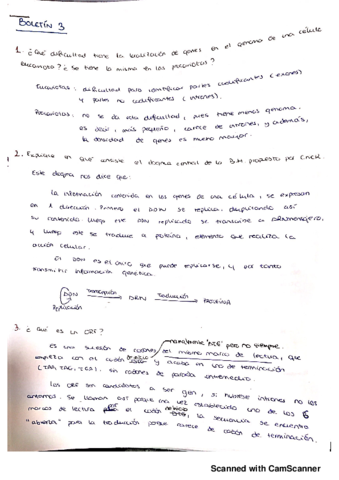 BOLETÍN 3
1. ¿Qué dificultad tiene la localización de genes en el genoma de una célula
eucariota? ¿Se tiene la misma en los procariotas?
Eucariotas: dificultad para identificar partes codificantes (exones)
y partes no codificantes (intrones).
Procariotas: no se da esta dificultad, pues tiene menos genoma,
es decir, más pequeño, carece de intrones, y además,
la densidad de genes es mucho mayor.
2. Explique en qué consiste el dogma central de la B.M. propuesto por Crick.
Este dogma nos dice que:
La información contenida en los genes de una célula, se expresan
en 1 dirección. Primero el DNA se replica, duplicando así
su contenido luego ese DNA replicado se transcribe a RNA mensajero,
y luego este se traduce a proteína, elemento que realiza la
acción celular.
El DNA es el único que puede replicarse, y por tanto
transmitir información genética.
DNA transcripción RNA traducción PROTEÍNA
replicación
3. ¿Qué es un ORF?
normalmente "ATG" pero no siempre.
Es una sucesión de codones del mismo marco de lectura, que
empieza con el codón de inicio y acaba en uno de terminación
(TAA, TAG, TGA), sin codones de parada intermedio.
Los ORF son candidatos a ser gen, si hubiese intrones no los
Se llaman así porque una vez establecido uno de los 6
marcos de lectura por el codón de inicio, la secuencia se encuentra
"abierta" para la traducción porque carece de codón de terminación.
Scanned with CamScanner